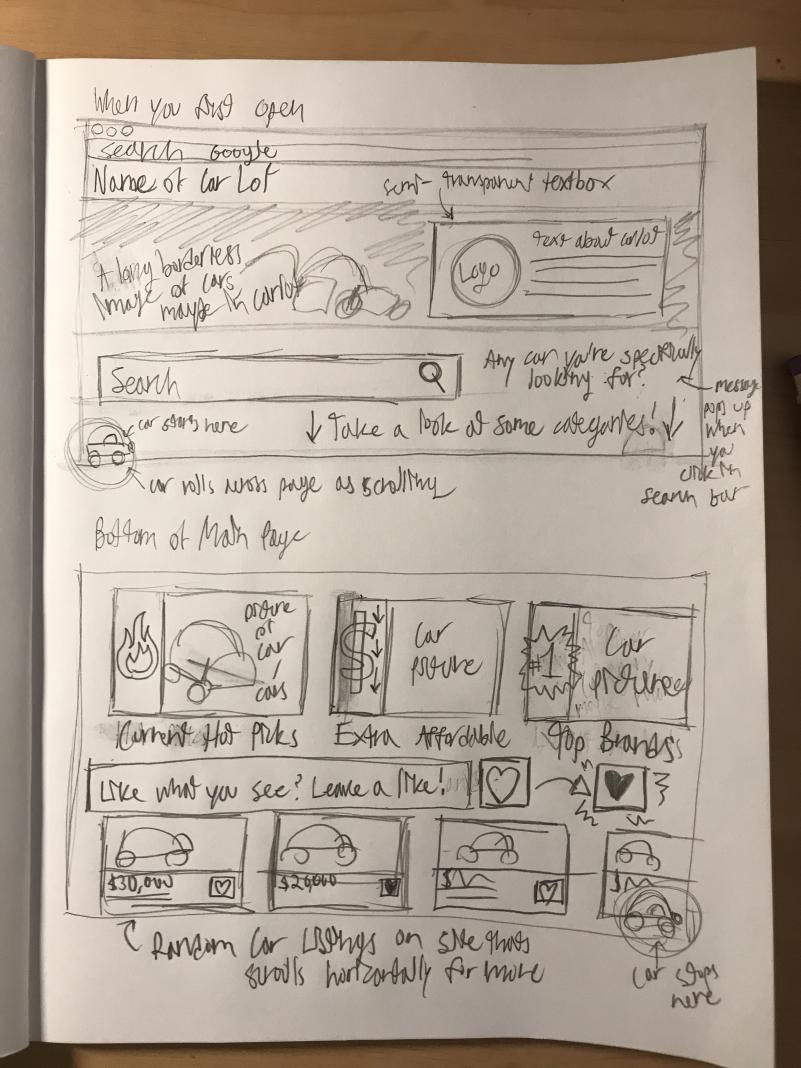 When you first open
Search Google
Name of Car Lot
semi-transparent textbox
A long borderless
image of cars
maybe in carlot
Logo
text about carlot
Search
Any car you're specifically
looking for?
message
pops up
when
you
click in
search bar
car starts here
↓ Take a look at some categories! ↓
car rolls across page as scrolling
Bottom of Main Page
picture
of
car /
cars
$
Car
picture
#1
Car
picture
Current Hot Picks
Extra Affordable
Top Brands
Like what you see? Leave a like!
$30,000
$20,000
$
$
Random Car Listings on site that
scrolls horizontally for more
car stops
here